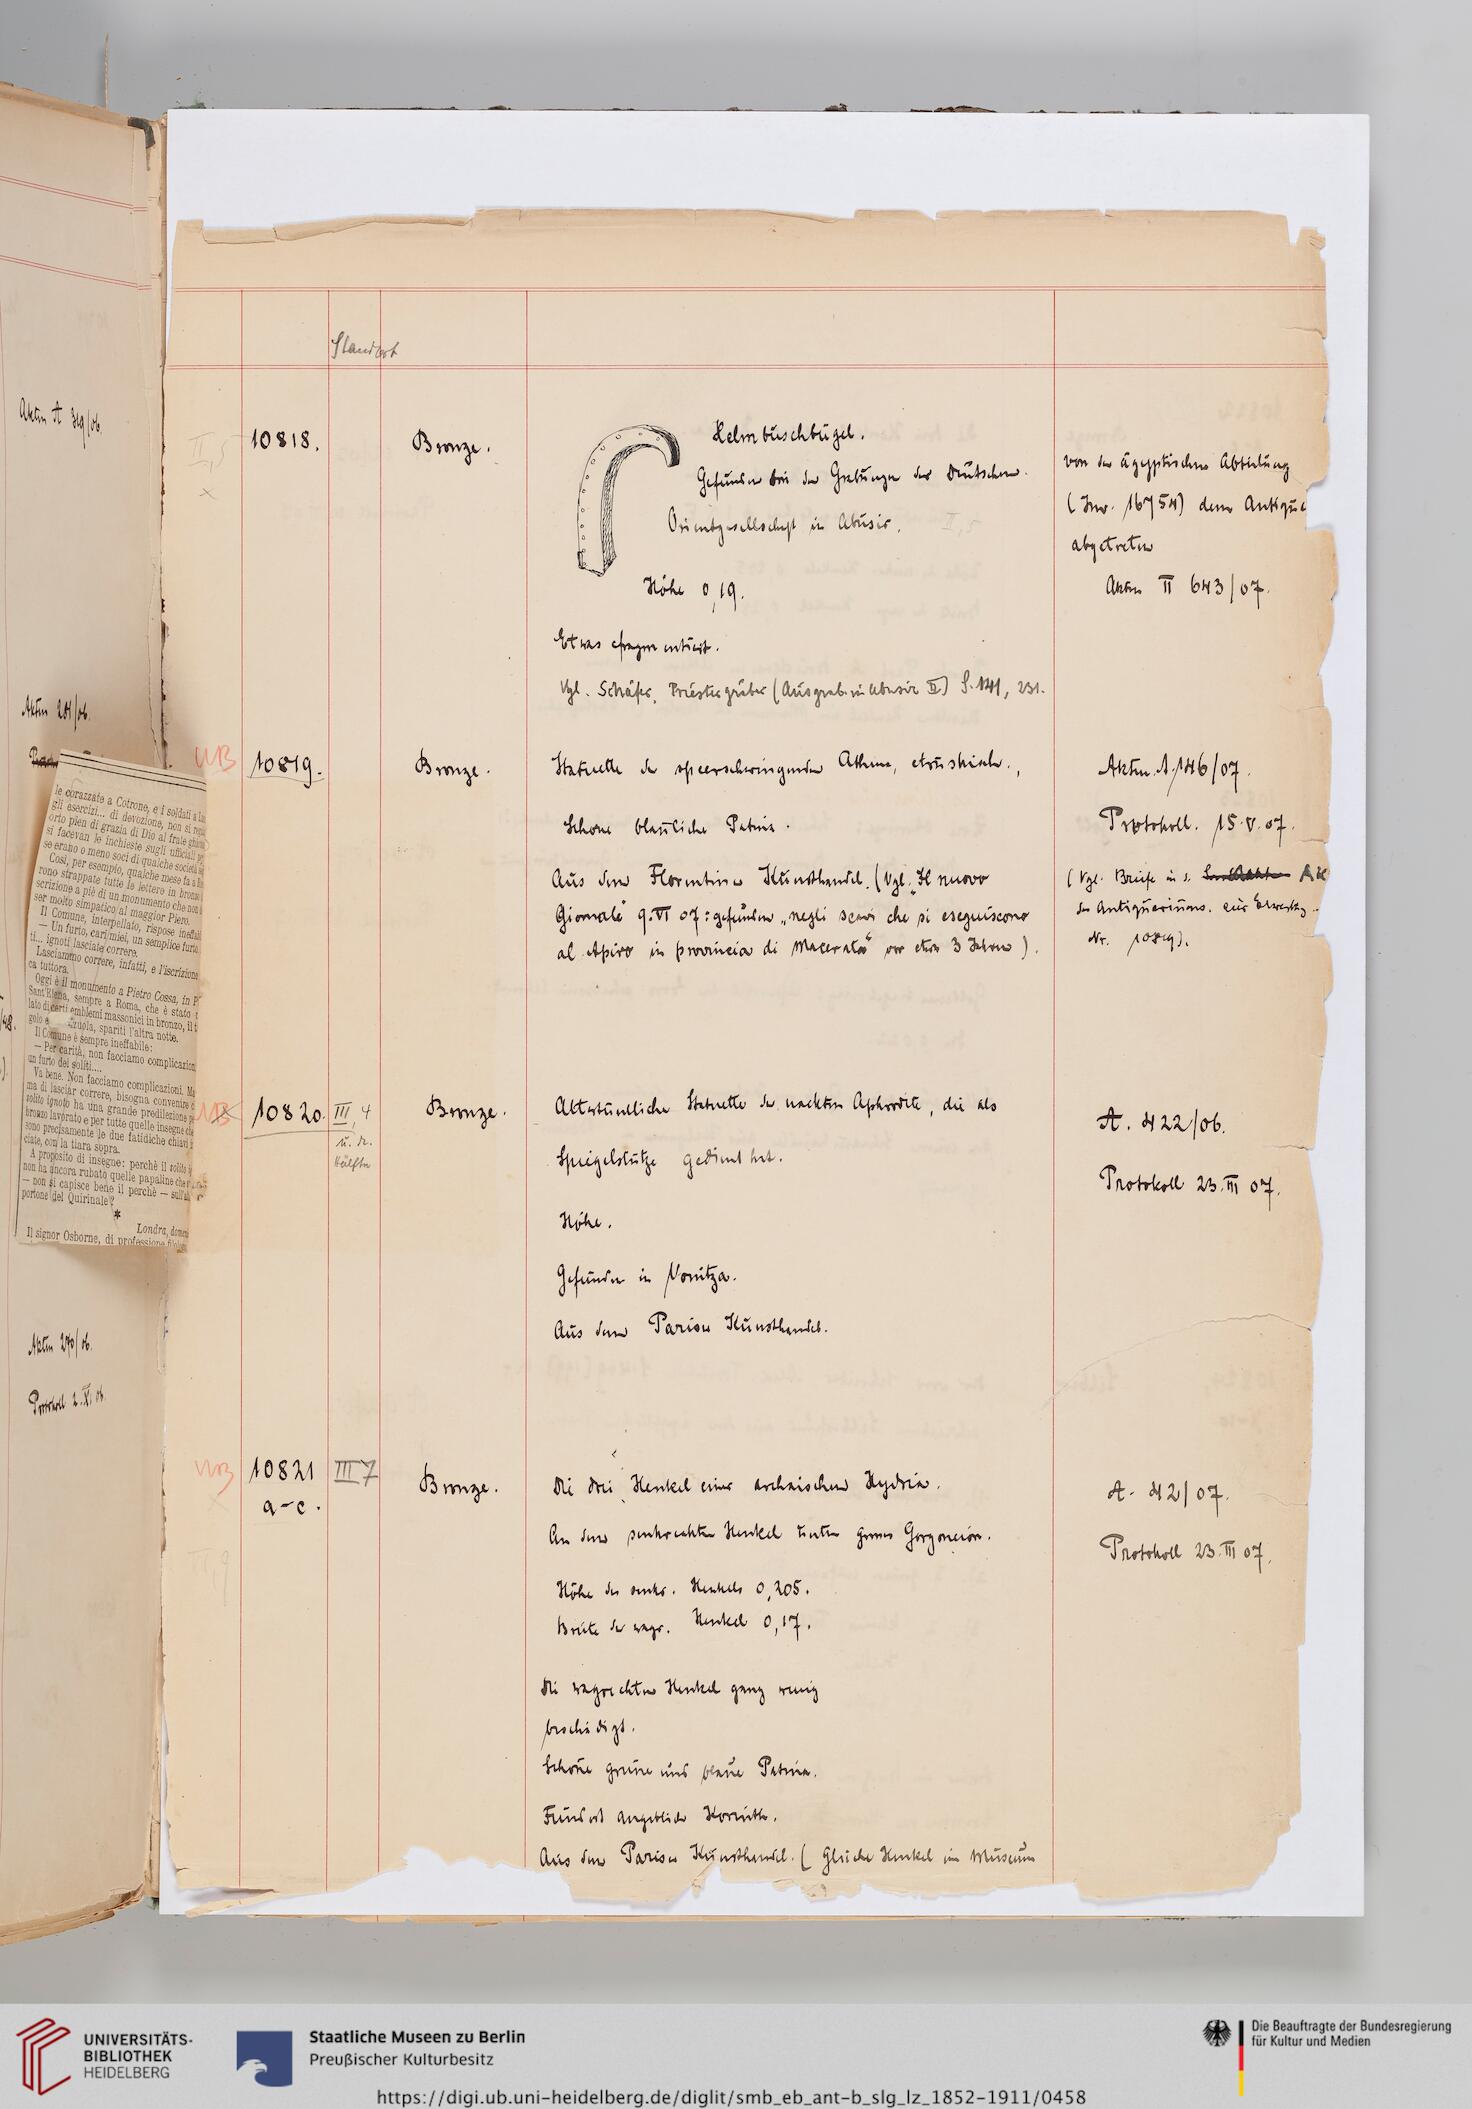 Akten A 319/06.
Akten 201/06.
Akten 270/06.
Protokoll 2.XI.06.
le corazzate a Cotrone, e i soldati a
gli esercizi... di devozione, non si
orto pien di grazia di Dio al frate
si facevan le inchieste sugli ufficiali
se erano o meno soci di qualche società
Così, per esempio, qualche mese fa a
rono strappate tutte le lettere in bronzo
scrizione a piè di un monumento che non
ser molto simpatico al maggior Pieri.
Il Comune, interpellato, rispose
— Un furto, cari miei, un semplice furto
ti... ignoti lasciate correre.
Lasciammo correre, infatti, e l'iscrizione
ca tuttora.
Oggi è il monumento a Pietro Cossa, in
Sant'Elena, sempre a Roma, che è stato
lato di certi emblemi massonici in bronzo, il
golo e zuola, spariti l'altra notte.
Il Comune è sempre ineffabile:
— Per carità, non facciamo complicazioni
un furto dei soliti....
Va bene. Non facciamo complicazioni. Ma
ma di lasciar correre, bisogna convenire
solito ignoto ha una grande predilezione
bronzo lavorato e per tutte quelle insegne che
sono precisamente le due fatidiche chiavi
ciate, con la tiara sopra.
A proposito di insegne: perchè il solito
non ha ancora rubato quelle papaline che
— non si capisce bene il perchè —
portone del Quirinale?
*
Londra,
Il signor Osborne, di professione
Standort
II,5
×
10818.
Bronze.
Helmbuschbügel.
Gefunden bei den Grabungen der Deutschen
Orientgesellschaft in Abusir. II,5
Höhe 0,19.
Etwas fragmentiert.
Vgl. Schäfer, Priestergräber (Ausgrab. in Abusir II) S. 141, 231.
von der ägyptischen Abteilung
(Inv. 16754) dem Antiqua
abgetreten
Akten II 643/07.
10819.
Bronze.
Statuette der speerschwingenden Athena, etruskisch.
Schöne bläuliche Patina.
Aus dem Florentiner Kunsthandel. (Vgl. „Il nuovo
Giornale“ 9.VI 07: gefunden „negli scavi che si eseguiscono
al Apiro in provincia di Macerata“ vor etwa 3 Jahren).
Akten A. 146/07.
Protokoll. 15.V.07.
(Vgl. Briefe in d. Ak
des Antiquariums. zur Erwerbg.
Nr. 10819).
10820.
III, 4
u. r.
Hälfte
Bronze.
Altertümliche Statuette der nackten Aphrodite, die als
Spiegelstütze gedient hat.
Höhe.
Gefunden in Vonitza.
Aus dem Pariser Kunsthandel.
A. 422/06.
Protokoll 23.III 07.
10821
a-c.
III 7
III,9
Bronze.
Die drei Henkel einer archaischen Hydria.
An dem senkrechten Henkel unten grosses Gorgoneion.
Höhe des senkr. Henkels 0,205.
Breite der wagr. Henkel 0,17.
Die wagrechten Henkel ganz wenig
beschädigt.
Schöne grüne und blaue Patina.
Fundort angeblich Korinth.
Aus dem Pariser Kunsthandel. (Gleiche Henkel im Museum
A. 42/07.
Protokoll 23.III 07.
UNIVERSITÄTS-
BIBLIOTHEK
HEIDELBERG
Staatliche Museen zu Berlin
Preußischer Kulturbesitz
Die Beauftragte der Bundesregierung
für Kultur und Medien
https://digi.ub.uni-heidelberg.de/diglit/smb_eb_ant-b_slg_lz_1852-1911/0458